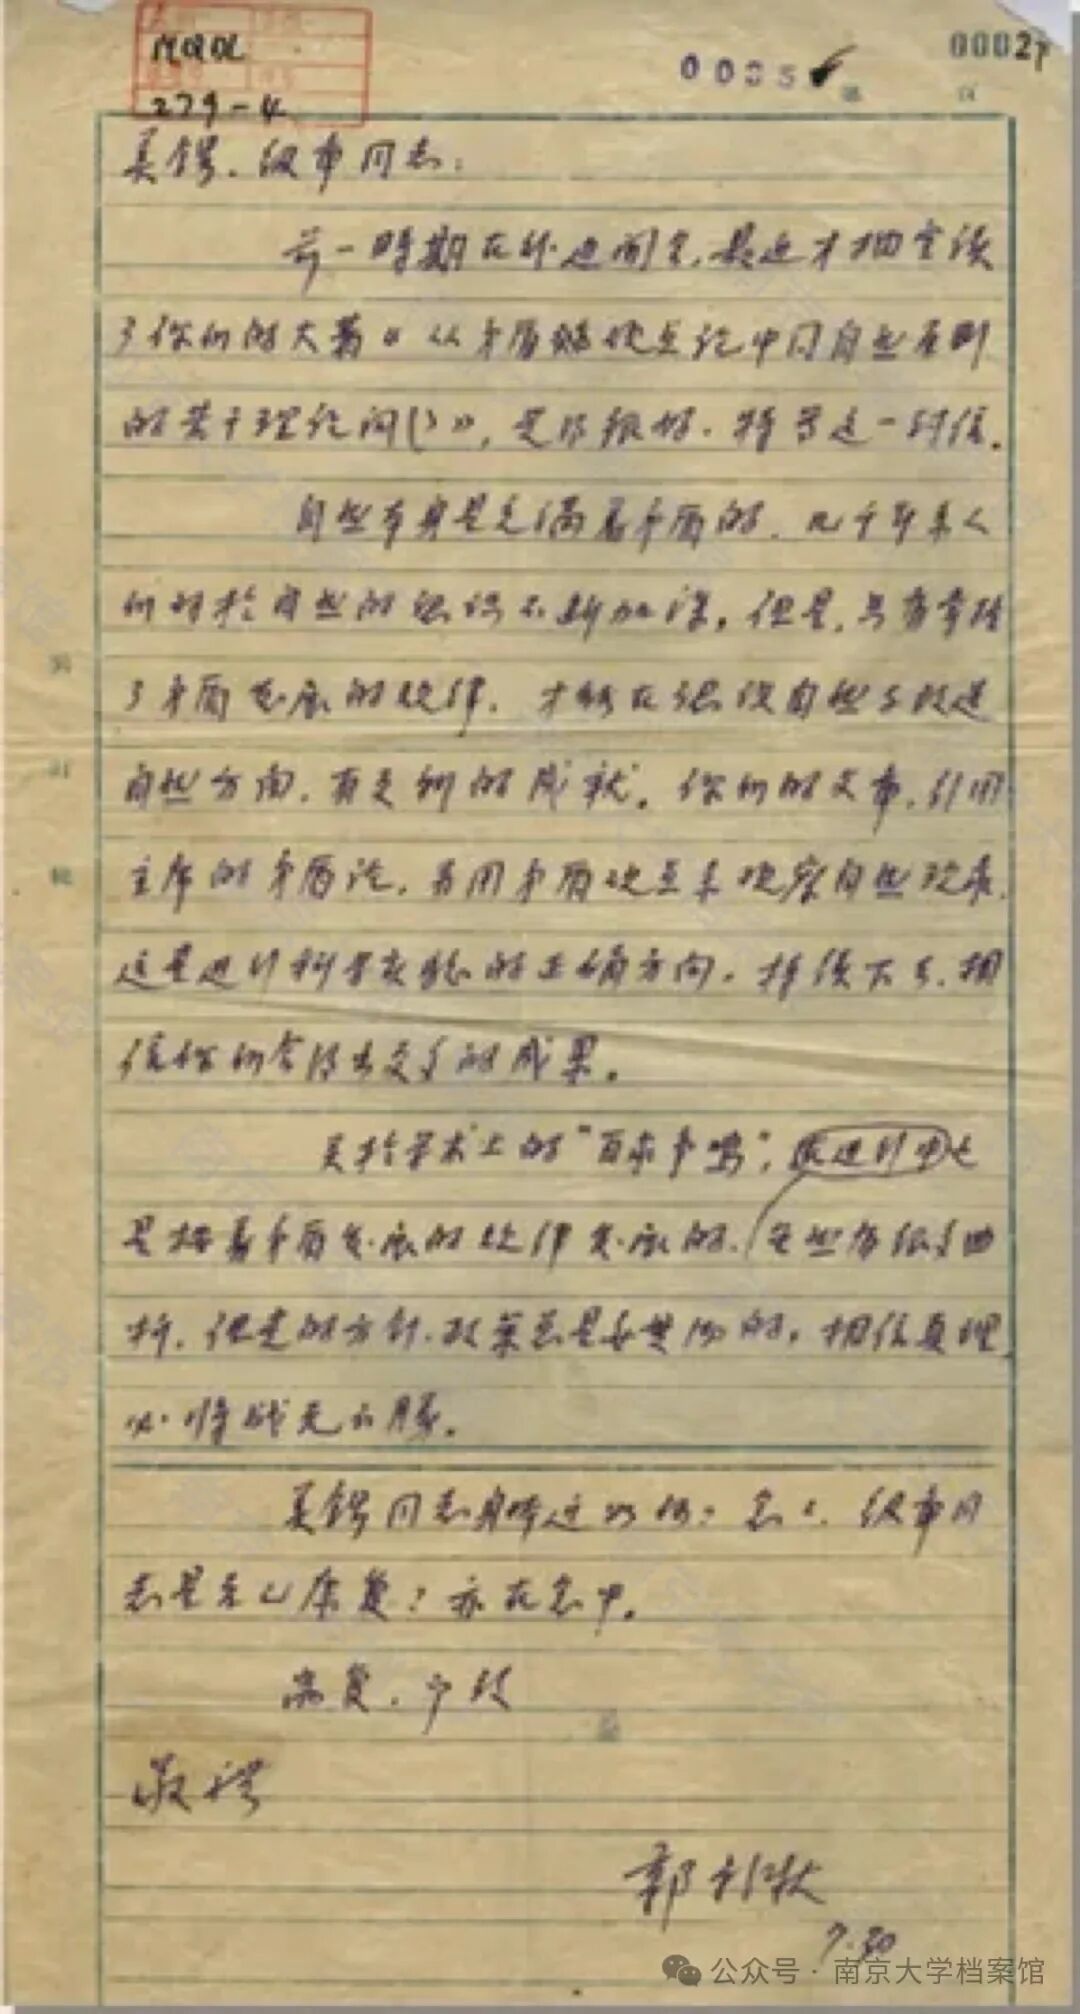 279-4
0002
美锷、级章同志:
前一时期在外边开会,最近才抽空读
了你们的大著《从矛盾 观点论中国自然区划
的若干理论问门》,觉得很好。特写这一封信。
自然本身是充满着矛盾的,几千年来人
们对於自然的认识不断加深,但是,只有掌握
了矛盾发展的规律,才能在认识自然与改造
自然方面,有更新的成就。你们的文章,引用
主席的矛盾论,并用矛盾观点来观察自然现象,
这是进行科学实验的正确方向。持续下去,相
信你们会得出更多的成果。
关於学术上的“百家争鸣”,在进行中也
是按着矛盾发展的规律发展的,虽然有很多曲
折,但党的方针、政策总是要贯彻的,相信真理
必将战无不胜。
美锷同志身体近如何?念念。级章同
志是否已康复?亦在念中。
耑复,即致
敬礼
郭影秋
7.30
公众号·南京大学档案馆